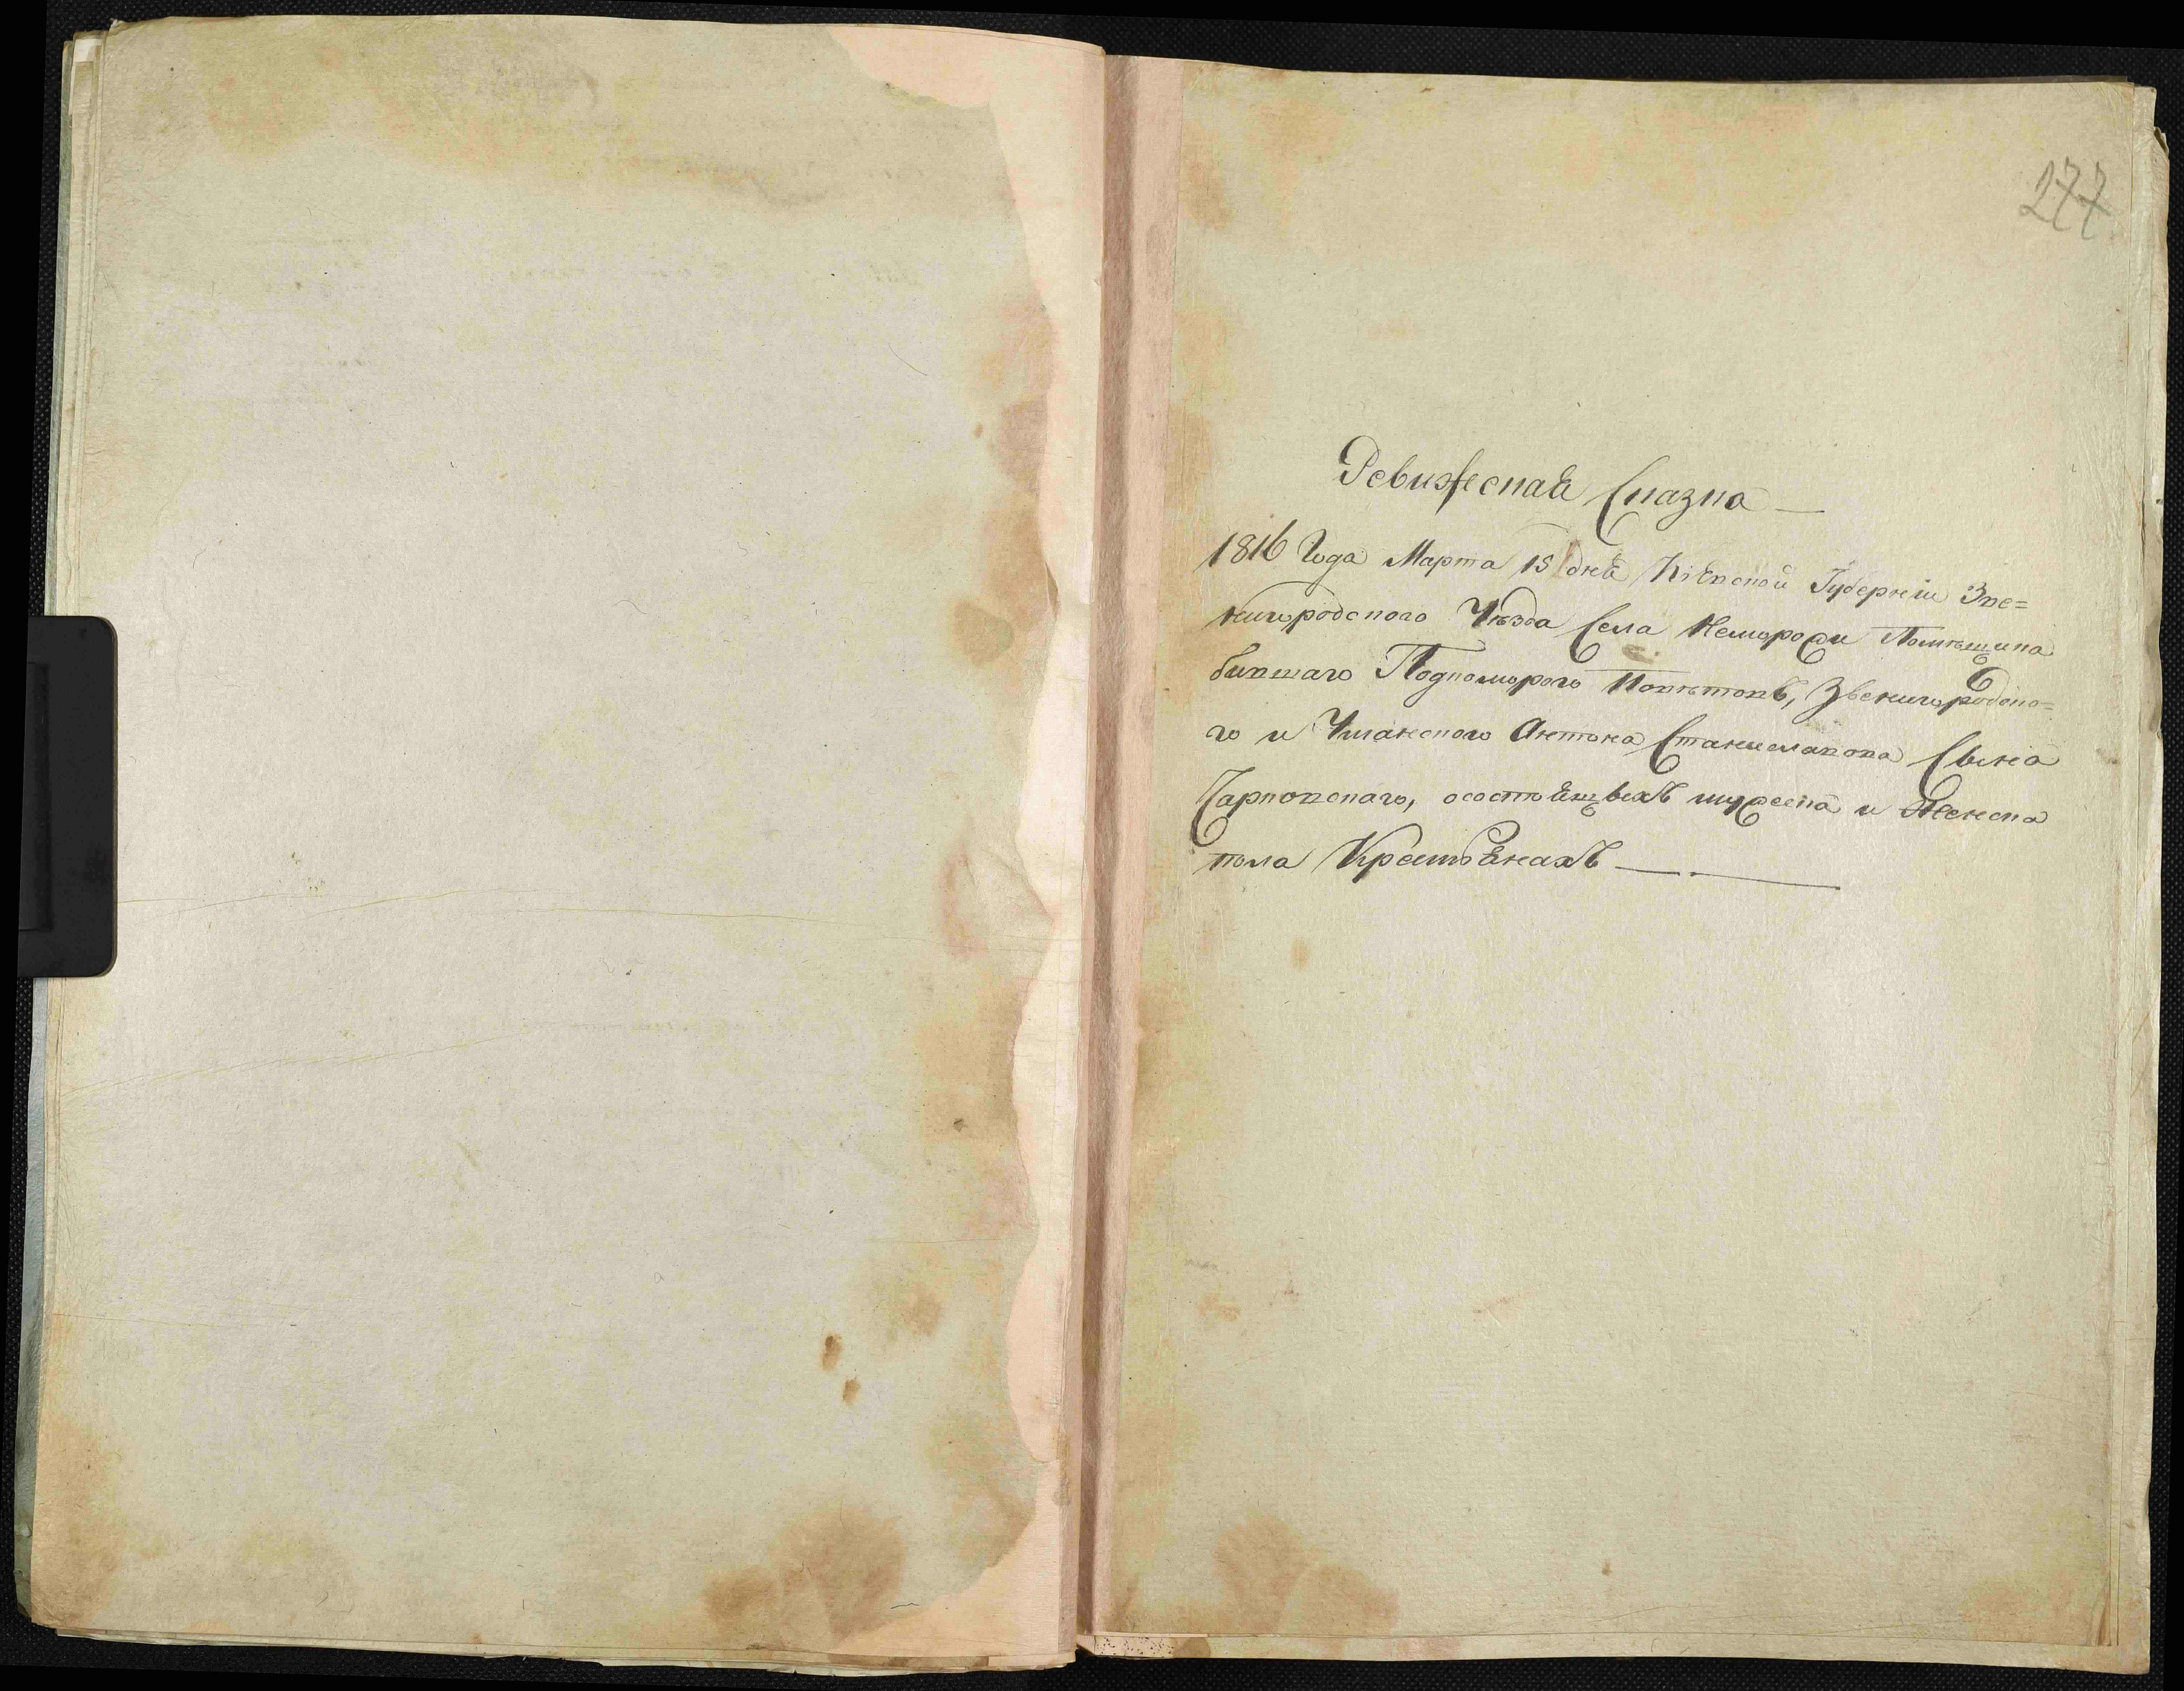 277
Ревизеская Сказка —
1816 Года Марта 15 дня Кіевской Губерніи Зве=
нигородского Уѣзда Села Неморожи Помѣщика
бившаго Подкоморого Повѣтовъ, Звенигородско=
го и Уманского Антона Станиславова Сына
Чарковскаго, осостоящихъ мужеска и Женска
пола Крестьянахъ — —